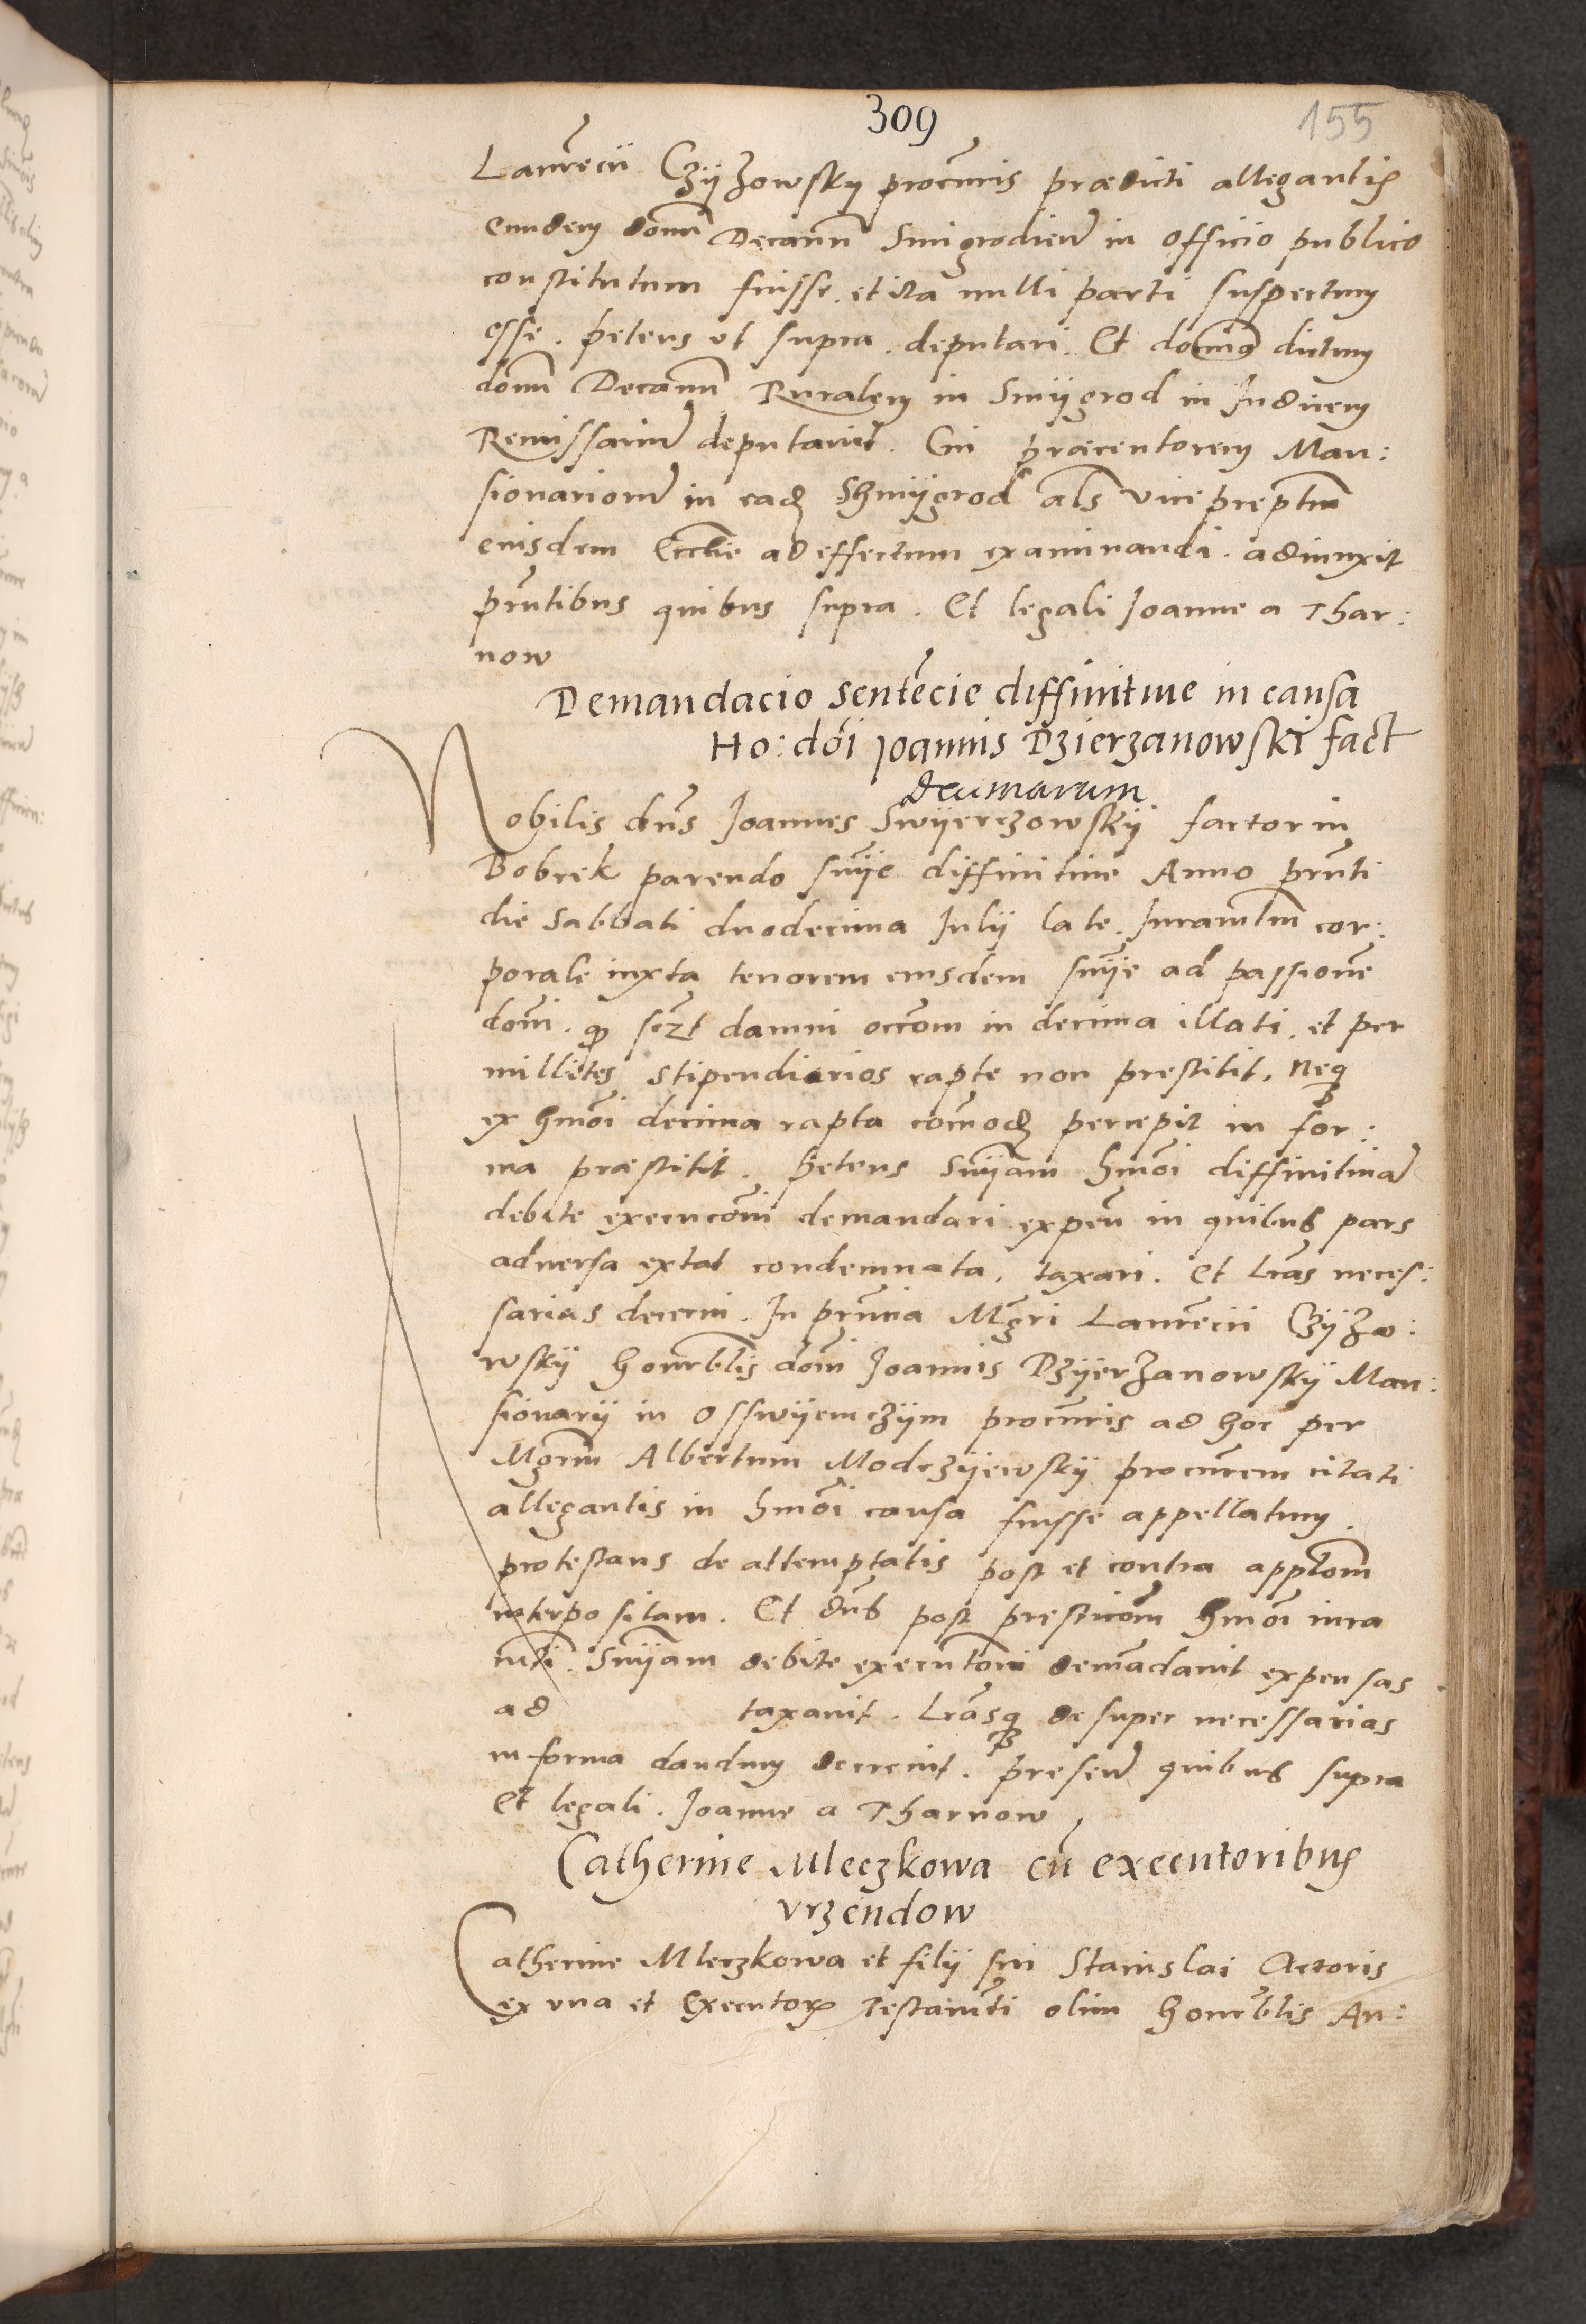 309
155
Laurẽcii Czÿzowsky procũris prædicti allegantis
eundem domũ Decanũ Smigrodien̄ in officio publico
constitutum fuisse. et ita nulli parti suspectum
esse. petens ut supra. deputari. Et dominus dictum
domũ Decanũ Ruralem in Smÿgrod in Judicem
Remissariũ deputavit. Cui præcentorem Man:
sionariorũ in eadem Shmÿgrod als vice preptũm
eiusdem Ecclie ad effectum examinandi. adiunxit
prñtibus quibus supra. Et legali Joanne a Thar:
now
Demandacio sentẽcie diffinitiue in causa
Ho: dõi Joannis Dzierzanowski fact
decimarum
Nobilis dñs Joannes Swÿerczowskÿ factor in
Bobrek parendo snÿe diffinitiue Anno prñti
die Sabbati duodecima Julÿ late. Juramtũm cor:
porale iuxta tenorem eiusdem snÿe ad passionẽ
domĩ. qp sczt damni occom in decima illati. et per
millites stipendiarios rapte non prestitit, neq
ex hmõi decima rapta comodum percepit in for:
ma præstitit. petens snÿam hmõi diffinitiuã
debite execucõni demandari expeñ in quibus pars
aduersa extat condemnata, taxari. Et Lrãs neces:
sarias decerni. In prñtia Mgri Laurẽcii Czÿzo:
wskÿ honorblis domĩ Joannis Dzÿerzanowskÿ Man:
sionarÿ in Osswÿenczÿm procũris ad hoc per
Mgrum Albertum Modrzÿewskÿ procũrem citati
allegantis in hmõi causa fuisse appellatum.
protestans de attemptatis post et contra appltõnm
interpositam. Et dñs post presticõnm hmõi iura
mti. Snÿam debite executõni demãdauit expensas
ad taxauit. Lrãsq desuper necessarias
in forma dandum decreuit. presen̄ quibus supra
Et legali. Joanne a Tharnow
Catherine Mleczkowa cũ executoribus
vrzendow
Catherine Mleczkowa et filÿ sui Stanislai Actoris
ex una et Executor Testamẽti olim honorblis An: